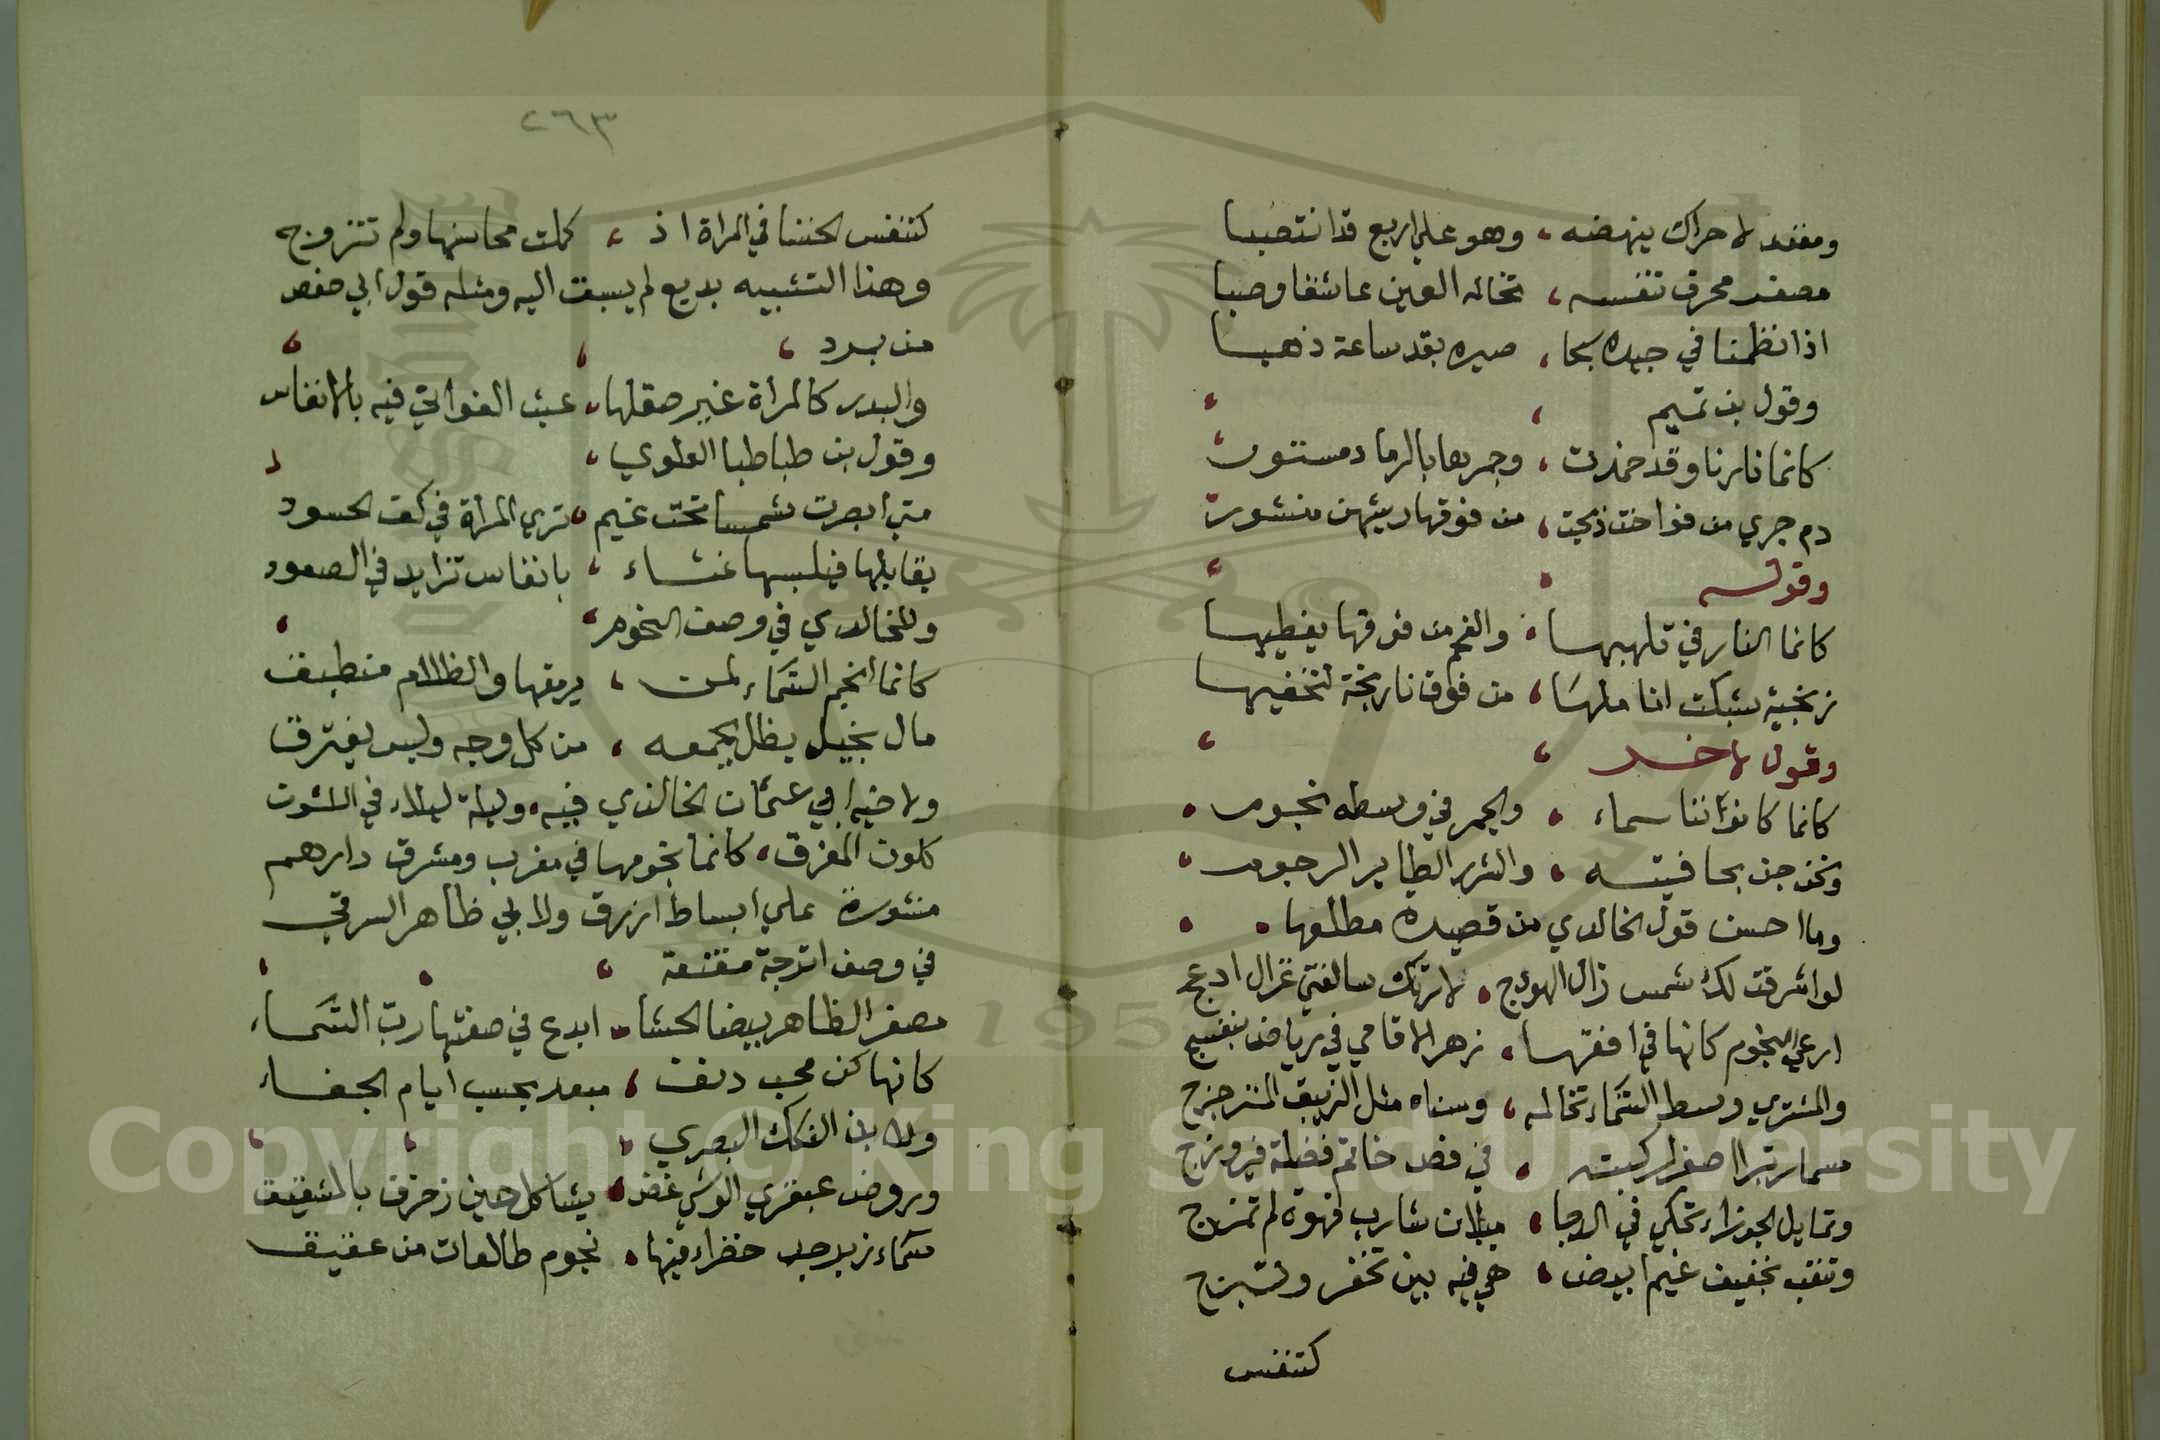 ومقعد لا حراك ينهضه ، وهو علي اربع قد انتصبا
مصفر محرق تنفسه ، تخاله العين عاشقا وصبا
اذا نظمنا في جيده سبحا ، صيره بعد ساعة ذهبا
وقول بن تميم ،
كانما نارنا وقد خمدت ، وجمرها بالرماد مستور
دم جري من فواخت ذبحت ، من فوقها ريشهن منثور
وقوله
كانما النار في تلهبها ، والفحم من فوقها يغطيها
زنجية شبكت اناملها ، من فوق نارنجة لتخفيها
وقول لاخر ،
كانما كانوننا سماء ، والجمر في وسطه نجوم
ونحن جن بحافيته ، والشرر الطاير الرجوم
وما احسن قول الخالدي من قصيدة مطلعها
لو اشرقت لك شمس ذاك الهودج ، لارتك سالفتي غزال ادعج
ارعي النجوم كانها في افقها ، زهر الاقاحي في رياض بنفسج
والمشتري وسط السماء تخاله ، وسناه مثل الزيبق المترجرج
مسمار تبر اصفر ركبته ، في فص خاتم فضة فيروزج
وتمايل الجوزاء تحكي في الدجا ، ميلان شارب قهوة لم تمزج
وتنقب بخفيف غيم ابيض ، هي فيه بين تخفر وتبرج
كتنفس
٢٦٣
كتنفس الحسنا في المراة اذ ، كملت محاسنها ولم تتزوج
وهذا التشبيه بديع لم يسبق اليه ومثله قول ابي حفص
من برد ،
والبدر كالمرأة غير صقلها ، عبث الغواني فيه بالانفاس
وقول بن طباطبا العلوي ،
متي أبصرت شمسا تحت غيم ، تري المرأة في كف الحسود
يقابلها فيلبسها غشاء ، بانفاس تزايد في الصعود
وللخالدي في وصف النجوم
كانما انجم السماء لمن ، يرمقها والظلام منطبق
مال بخيل يظل يجمعه ، من كل وجه وليس يفترق
ولاخيه ابي عثمان الخالدي فيه ، وليلة ليلاء في اللون
كلون المفرق ، كانما نجومها في مغرب ومشرق دارهم
منثورة علي ابساط ازرق ولابي ظاهر السرقي
في وصف اترجة مقنعة
مصفر الظاهر بيضا الحشا ، ابدع في صنعتها رب السماء
كانها كف محب دنف ، مبعد يحسب أيام الجفاء
ولابن لنكك البصري
وروض عبقري الوشي غض ، يشاكل حين زخرف بالشقيق
سماء زبرجد خضراء فيها ، نجوم طالعات من عقيق
Copyright © King Saud University
1957